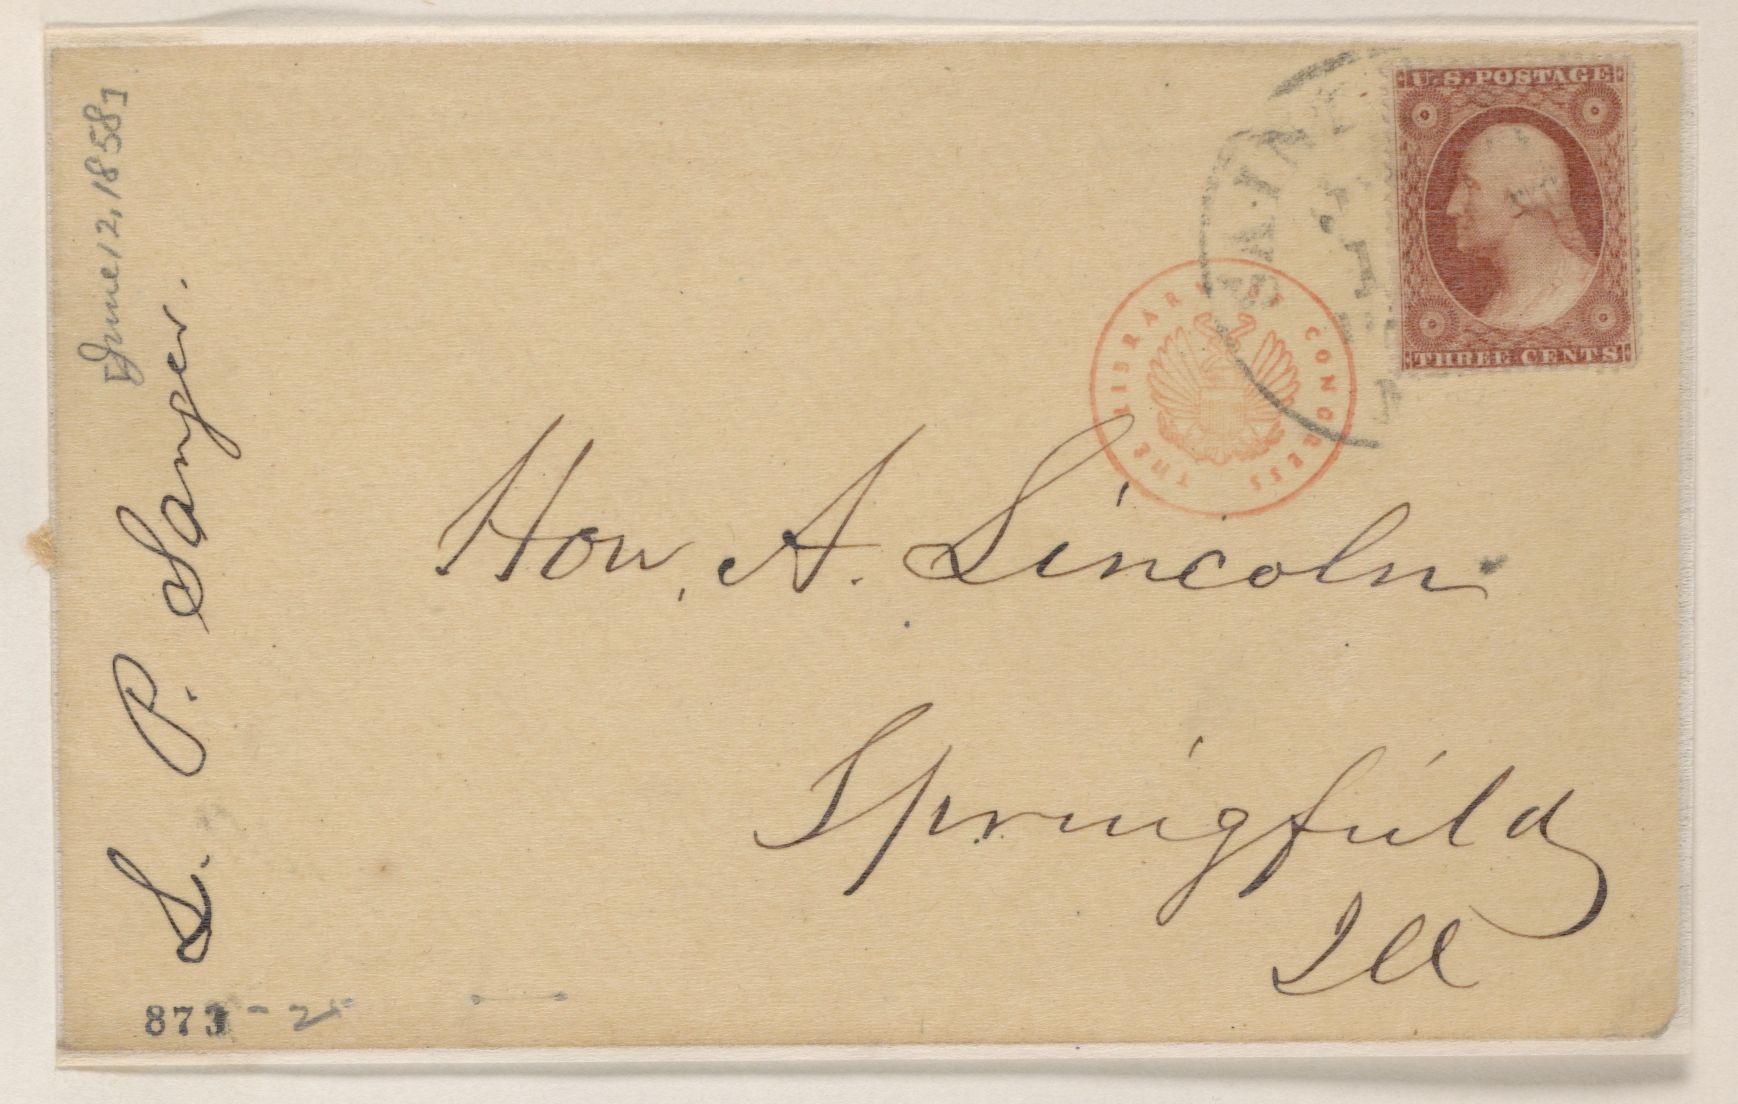 U.S.POSTAGE
THREE CENTS
SAINT
THE LIBRARY OF CONGRESS
[June 12, 1858]
L. P. Sanger.
Hon. A. Lincoln
Springfield
Ill
873